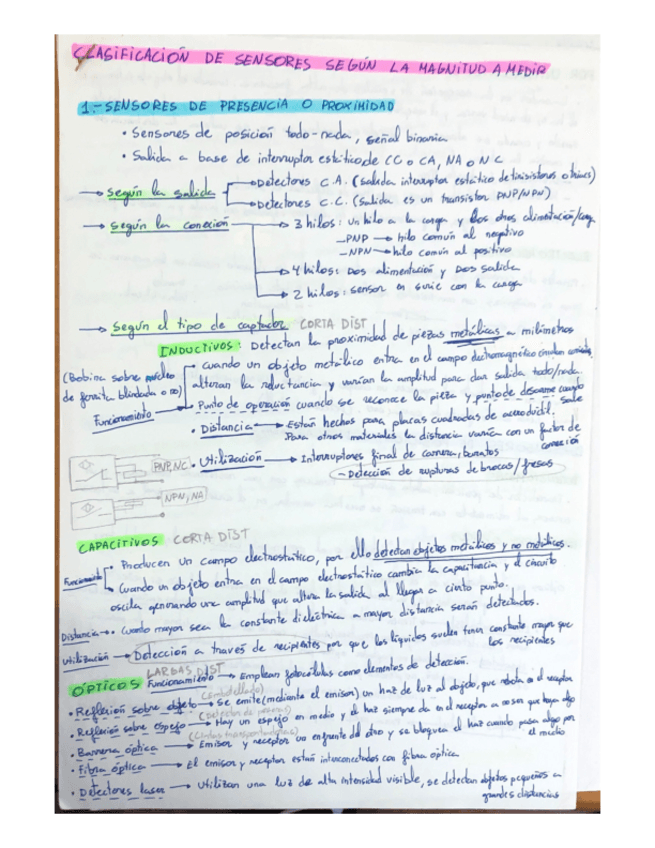 CLASIFICACIÓN DE SENSORES SEGÚN LA MAGNITUD A MEDIR
1.- SENSORES DE PRESENCIA O PROXIMIDAD
• Sensores de posición todo-nada, señal binaria
• Salida a base de interruptor estático de CC o CA, NA o NC
→ Según la salida → Detectores C.A. (Salida interruptor estático de tiristores o triacs)
→ Detectores C.C. (Salida es un transistor PNP/NPN)
→ Según la conexión → 3 hilos: un hilo a la carga y dos otros alimentación/carga
- PNP → hilo común al negativo
- NPN → hilo común al positivo
→ 4 hilos: Dos alimentación y Dos salida
→ 2 hilos: sensor en serie con la carga
→ Según el tipo de captador CORTA DIST
INDUCTIVOS: Detectan la proximidad de piezas metálicas a milímetros
(Bobina sobre núcleo de ferrita blindada o no)
Funcionamiento → • Cuando un objeto metálico entra en el campo electromagnético
alteran la reluctancia y varían la amplitud para dar salida todo/nada
• Punto de operación cuando se reconoce la pieza y punto de desarme cuando sale
• Distancia → Están hechos para placas cuadradas de acero dúctil.
Para otros materiales la distancia varía con un factor de
• Utilización → Interruptores final de carrera,
- Detección de rupturas de brocas/fresas
PNP, NC
NPN, NA
CAPACITIVOS CORTA DIST
Funcionamiento • Producen un campo electrostático, por ello detectan objetos metálicos y no metálicos.
• Cuando un objeto entra en el campo electrostático cambia la capacitancia y el circuito
oscila generando una amplitud que altera la salida al llegar a cierto punto.
Distancia → • Cuanto mayor sea la constante dieléctrica a mayor distancia serán detectados.
Utilización → Detección a través de recipientes por que los líquidos suelen tener constante mayor que
los recipientes
LARGAS DIST
ÓPTICOS Funcionamiento → Emplean fotocélulas como elementos de detección.
(Embotellado)
• Reflexión sobre objeto → Se emite (mediante el emisor) un haz de luz al objeto, que rebota en el receptor
• Reflexión sobre espejo → Hay un espejo en medio y el haz siempre da en el receptor a no ser que haya algo
en medio
(Cintas transportadoras)
• Barrera óptica → Emisor y receptor uno enfrente del otro y se bloquea el haz cuando pasa algo por
el medio
• Fibra óptica → El emisor y receptor están interconectados con fibra óptica
• Detectores laser → Utilizan una luz de alta intensidad visible, se detectan objetos pequeños a
grandes distancias